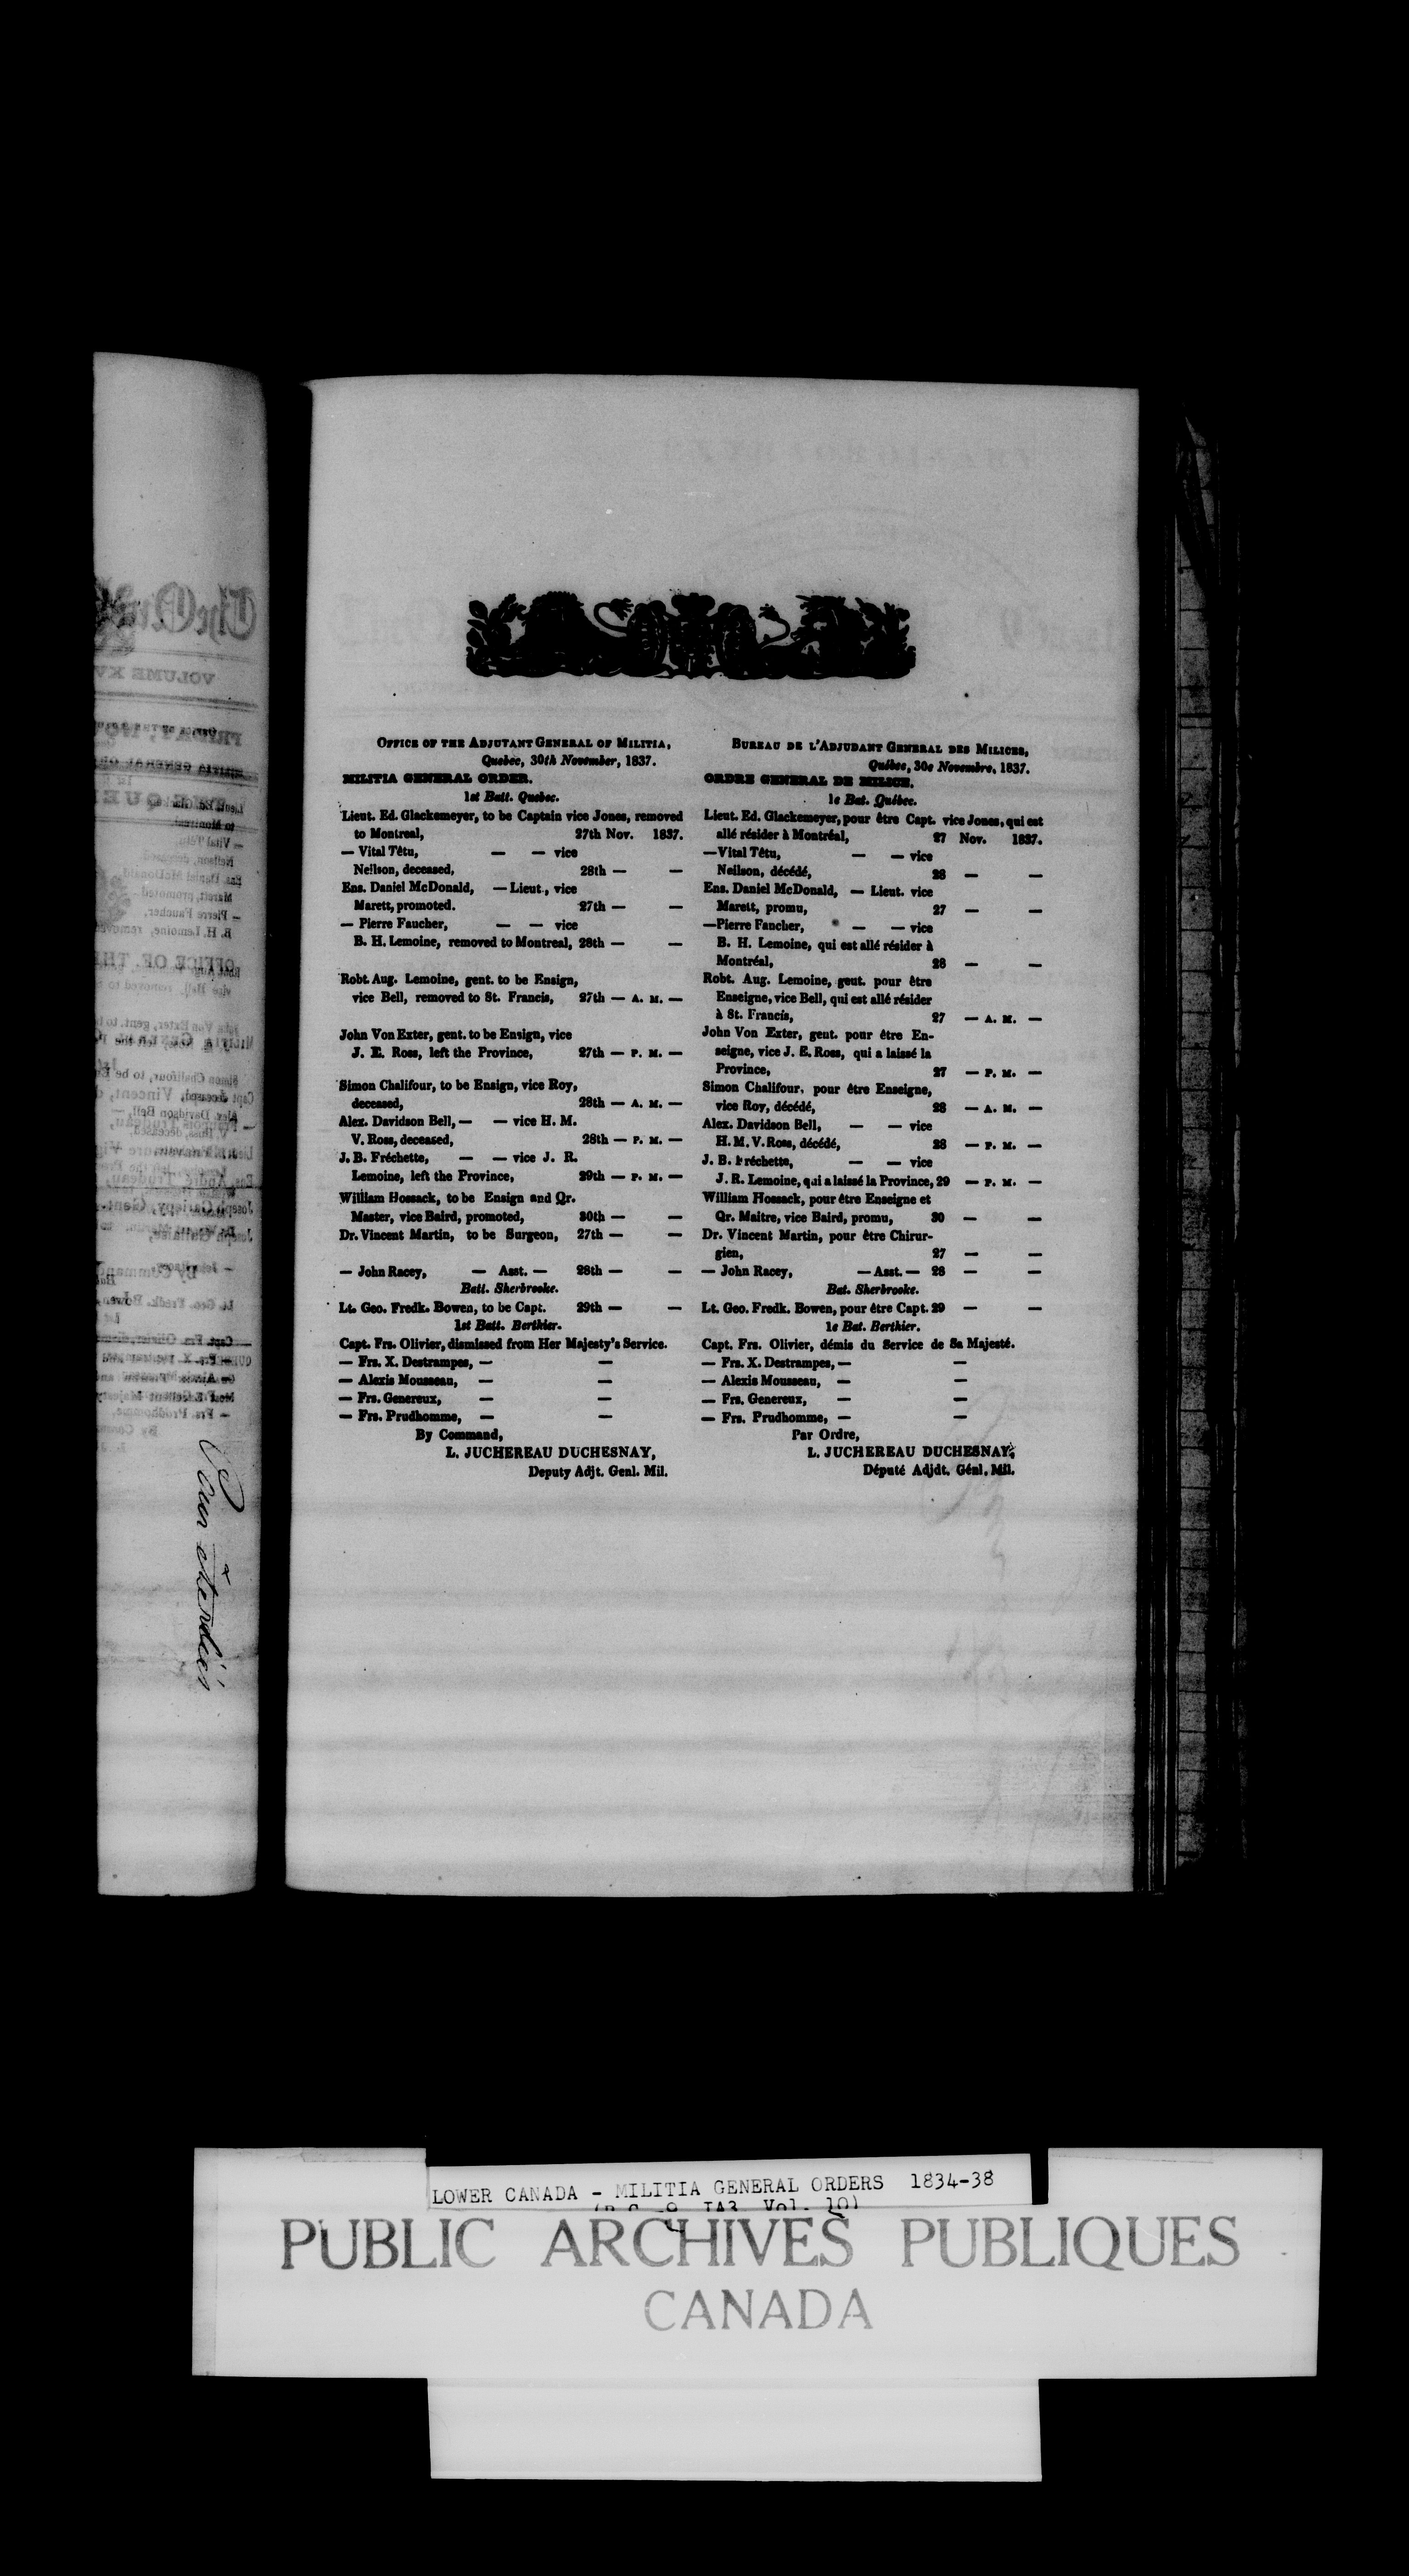 OFFICE OF THE ADJUTANT GENERAL OF MILITIA,
Quebec, 30th November, 1837.
MILITIA GENERAL ORDER.
1st Batt. Quebec.
Lieut. Ed. Glackemeyer, to be Captain vice Jones, removed
to Montreal, 27th Nov. 1837.
— Vital Têtu, — — vice
Neilson, deceased, 28th — —
Ens. Daniel McDonald, — Lieut., vice
Marett, promoted. 27th — —
— Pierre Faucher, — — vice
B. H. Lemoine, removed to Montreal, 28th — —
Robt. Aug. Lemoine, gent. to be Ensign,
vice Bell, removed to St. Francis, 27th — A. M. —
John Von Exter, gent. to be Ensign, vice
J. E. Ross, left the Province, 27th — P. M. —
Simon Chalifour, to be Ensign, vice Roy,
deceased, 28th — A. M. —
Alex. Davidson Bell, — — vice H. M.
V. Ross, deceased, 28th — P. M. —
J. B. Fréchette, — — vice J. R.
Lemoine, left the Province, 29th — P. M. —
William Hossack, to be Ensign and Qr.
Master, vice Baird, promoted, 30th — —
Dr. Vincent Martin, to be Surgeon, 27th — —
— John Racey, — Asst. — 28th — —
Batt. Sherbrooke.
Lt. Geo. Fredk. Bowen, to be Capt. 29th — —
1st Batt. Berthier.
Capt. Frs. Olivier, dismissed from Her Majesty's Service.
— Frs. X. Destrampes, — —
— Alexis Mousseau, — —
— Frs. Genereux, — —
— Frs. Prudhomme, — —
By Command,
L. JUCHEREAU DUCHESNAY,
Deputy Adjt. Genl. Mil.
BUREAU DE L'ADJUDANT GENERAL DES MILICES,
Québec, 30e Novembre, 1837.
ORDRE GENERAL DE MILICE.
1e Bat. Québec.
Lieut. Ed. Glackemeyer, pour être Capt. vice Jones, qui est
allé résider à Montréal, 27 Nov. 1837.
— Vital Têtu, — — vice
Neilson, décédé, 28 — —
Ens. Daniel McDonald, — Lieut. vice
Marett, promu, 27 — —
— Pierre Fancher, — — vice
B. H. Lemoine, qui est allé résider à
Montréal, 28 — —
Robt. Aug. Lemoine, gent. pour être
Enseigne, vice Bell, qui est allé résider
à St. Francis, 27 — A. M. —
John Von Exter, gent. pour être En-
seigne, vice J. E. Ross, qui a laissé la
Province, 27 — P. M. —
Simon Chalifour, pour être Enseigne,
vice Roy, décédé, 28 — A. M. —
Alex. Davidson Bell, — — vice
H. M. V. Ross, décédé, 28 — P. M. —
J. B. Fréchette, — — vice
J. R. Lemoine, qui a laissé la Province, 29 — P. M. —
William Hossack, pour être Enseigne et
Qr. Maitre, vice Baird, promu, 30 — —
Dr. Vincent Martin, pour être Chirur-
gien, 27 — —
— John Racey, — Asst. — 28 — —
Bat. Sherbrooke.
Lt. Geo. Fredk. Bowen, pour être Capt. 29 — —
1e Bat. Berthier.
Capt. Frs. Olivier, démis du Service de Sa Majesté.
— Frs. X. Destrampes, — —
— Alexis Mousseau, — —
— Frs. Genereux, — —
— Frs. Prudhomme, — —
Par Ordre,
L. JUCHEREAU DUCHESNAY,
Député Adjdt. Génl. Mil.
LOWER CANADA - MILITIA GENERAL ORDERS 1834-38
PUBLIC ARCHIVES PUBLIQUES
CANADA